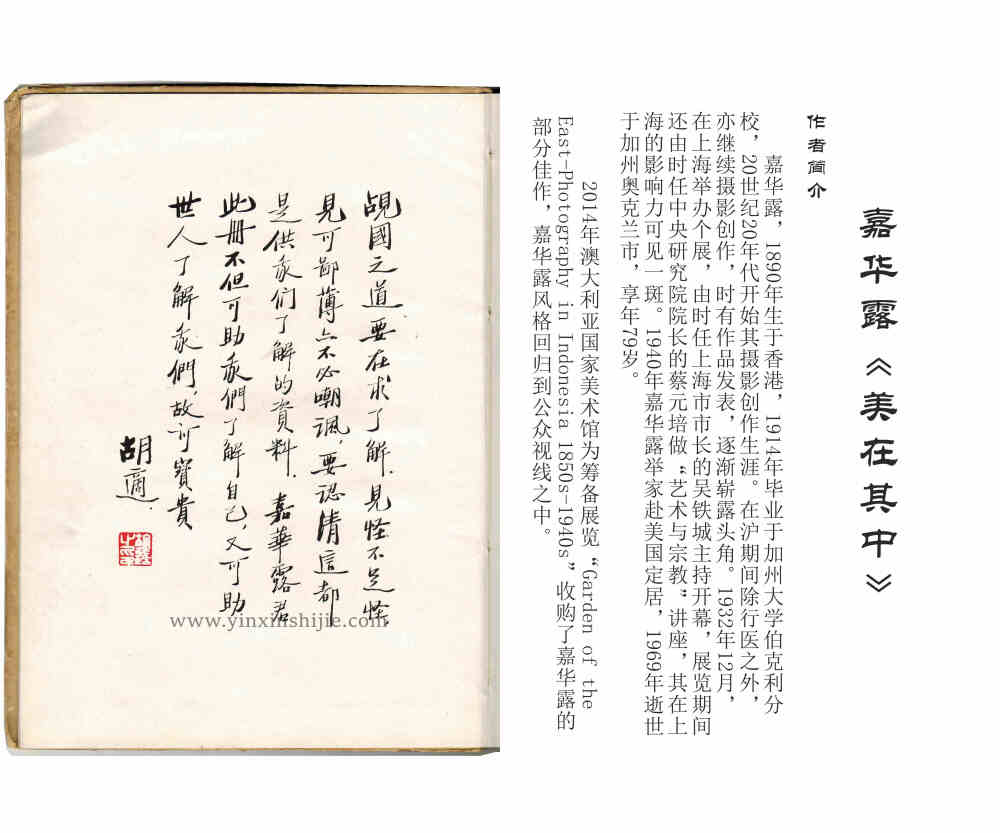 嘉华露《美在其中》
作者简介
嘉华露，1890年生于香港，1914年毕业于加州大学伯克利分
校，20世纪20年代开始其摄影创作生涯。在沪期间除行医之外，
亦继续摄影创作，时有作品发表，逐渐崭露头角。1932年12月，
在上海举办个展，由时任上海市市长的吴铁城主持开幕，展览期间
还由时任中央研究院院长的蔡元培做“艺术与宗教”讲座，其在上
海的影响力可见一斑。1940年嘉华露举家赴美国定居，1969年逝世
于加州奥克兰市，享年79岁。
2014年澳大利亚国家美术馆为筹备展览“Garden of the
East-Photography in Indonesia 1850s-1940s”收购了嘉华露的
部分佳作，嘉华露风格回归到公众视线之中。
覘國之道要在求了解．見怪不足怪，
見可鄙薄亦不必嘲諷，要認清這都
是供我们了解的資料．嘉華露君
此冊不但可助我們了解自己，又可助
世人了解我們，故可寶貴
胡適．
www.yinxinshijie.com